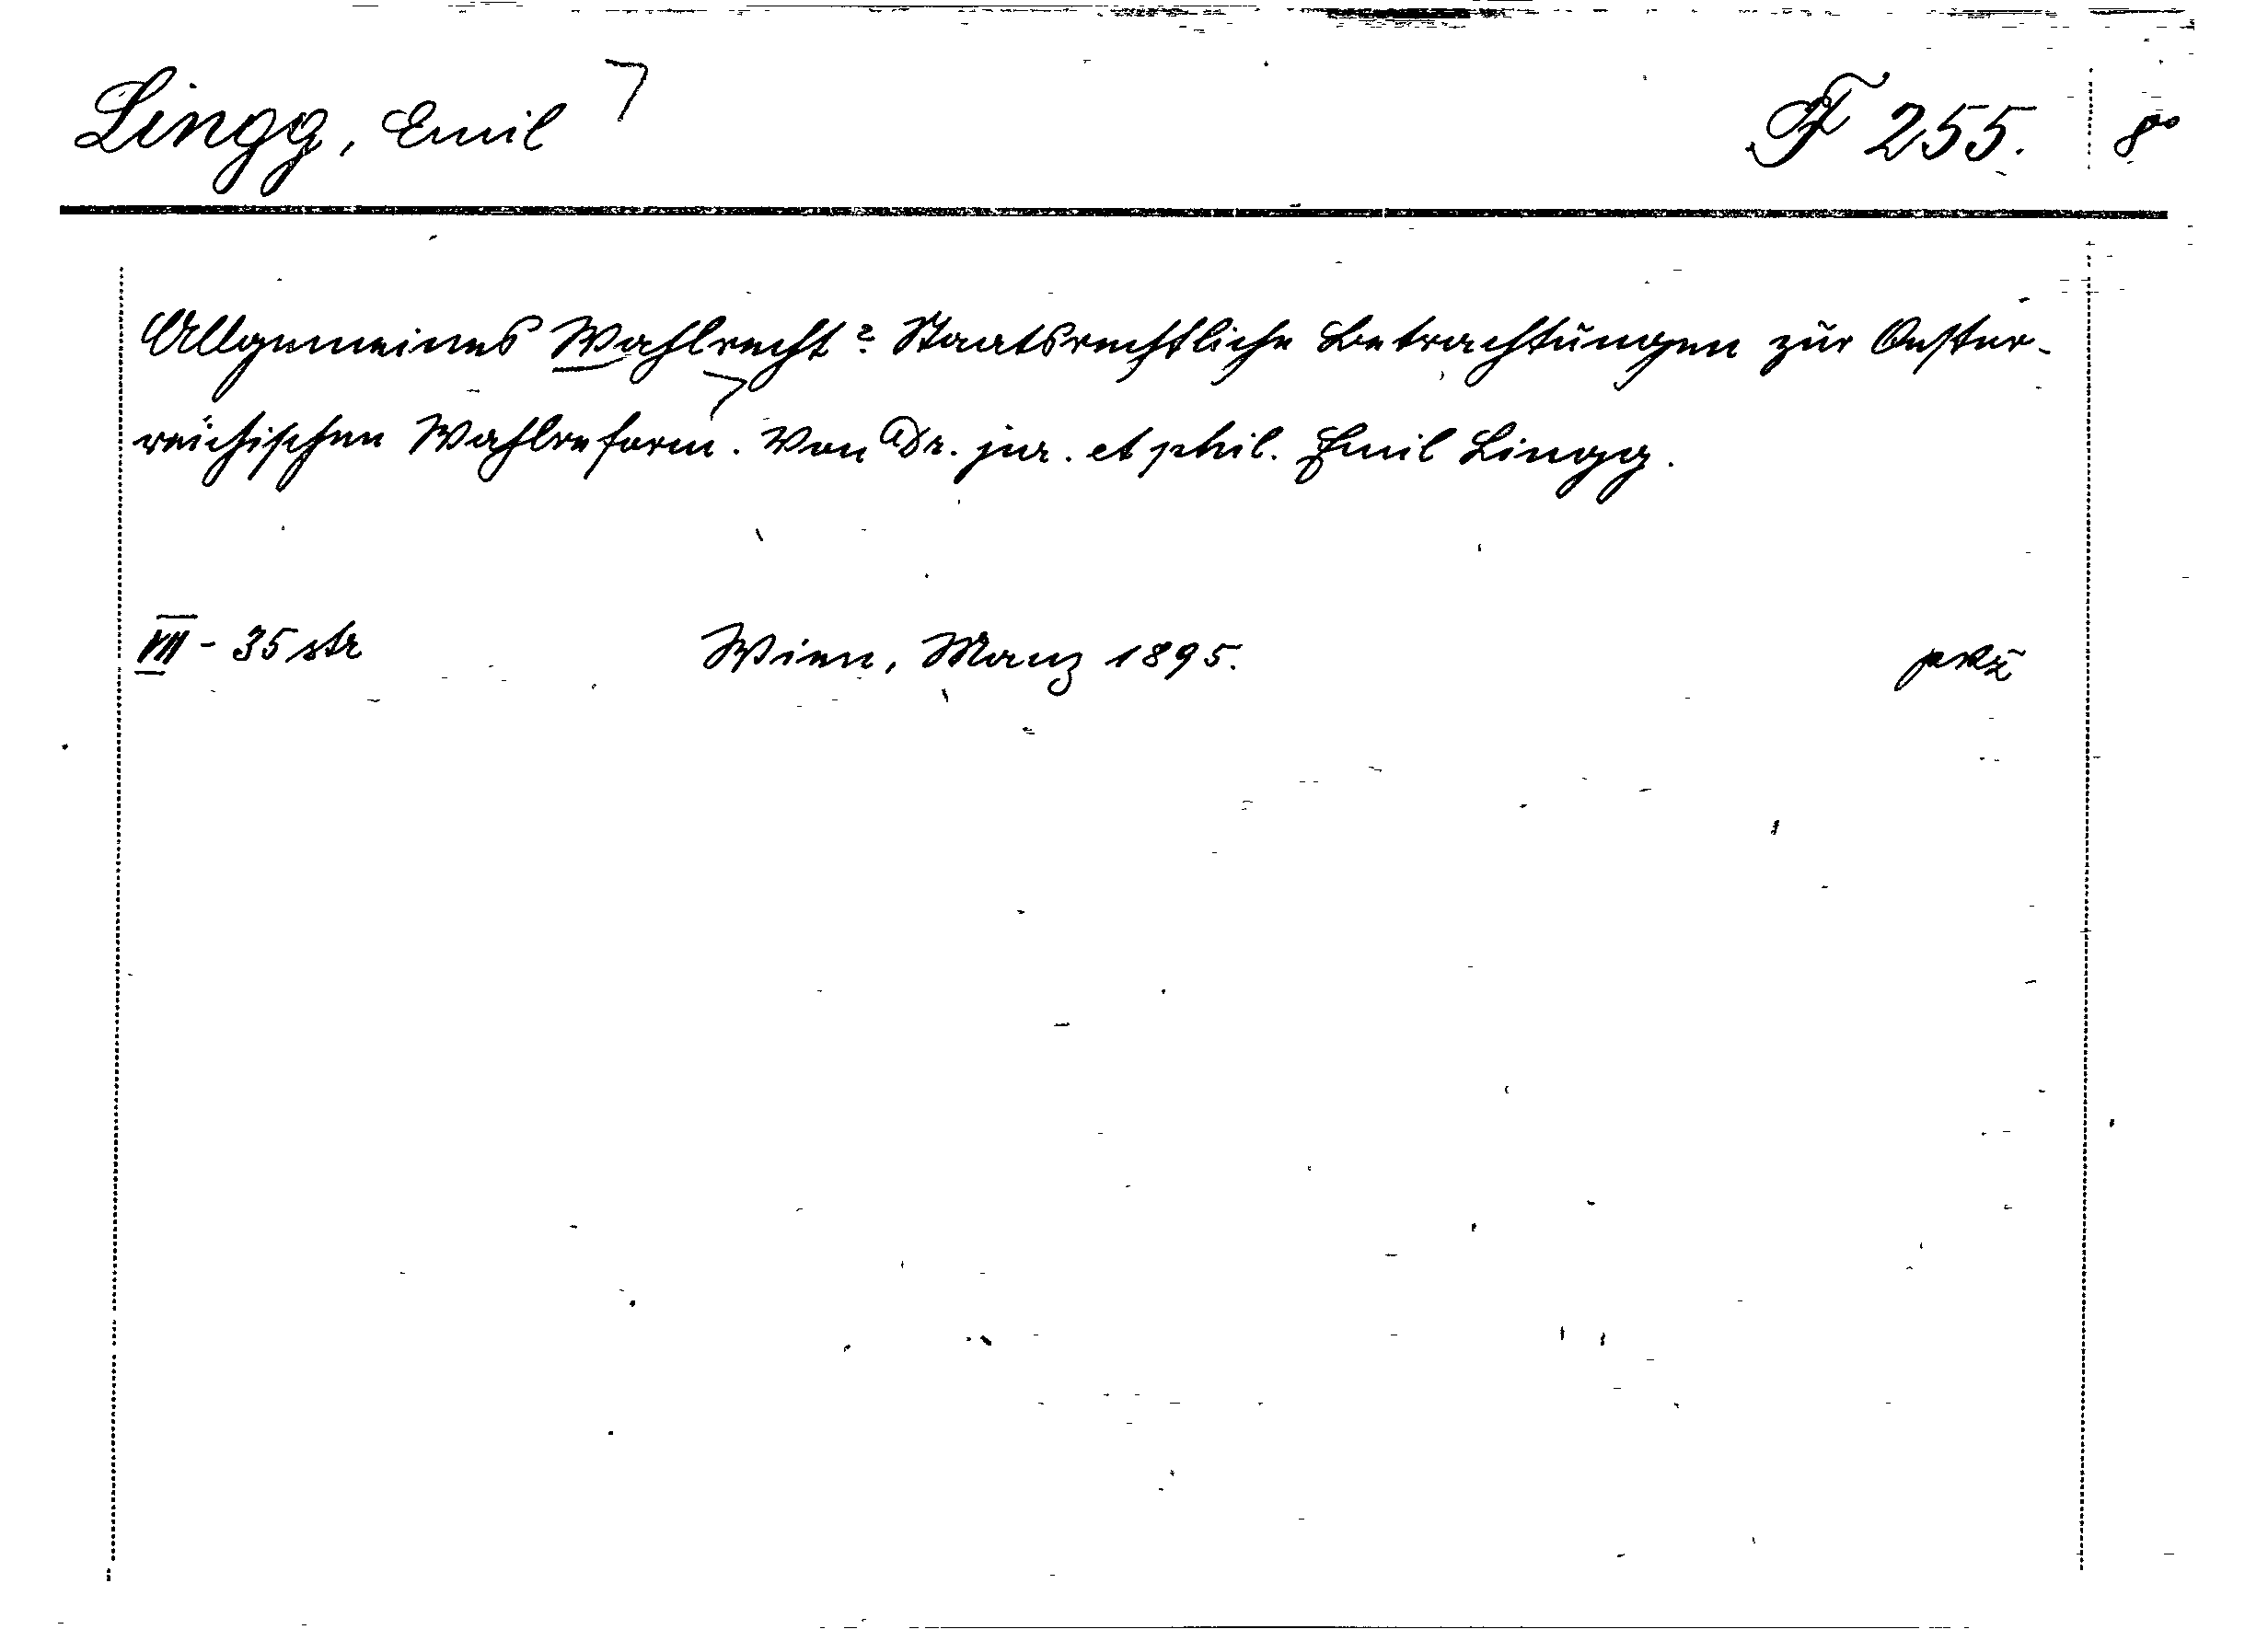 Lingg, Emil F 255. 8°
Allgemeines Wahlrecht? Staatsrechtliche Betrachtungen zur Oester-
reichischen Wahlreform. Von Dr. jur. et phil. Emil Lingg.
VII - 35 str Wien, Manz 1895.